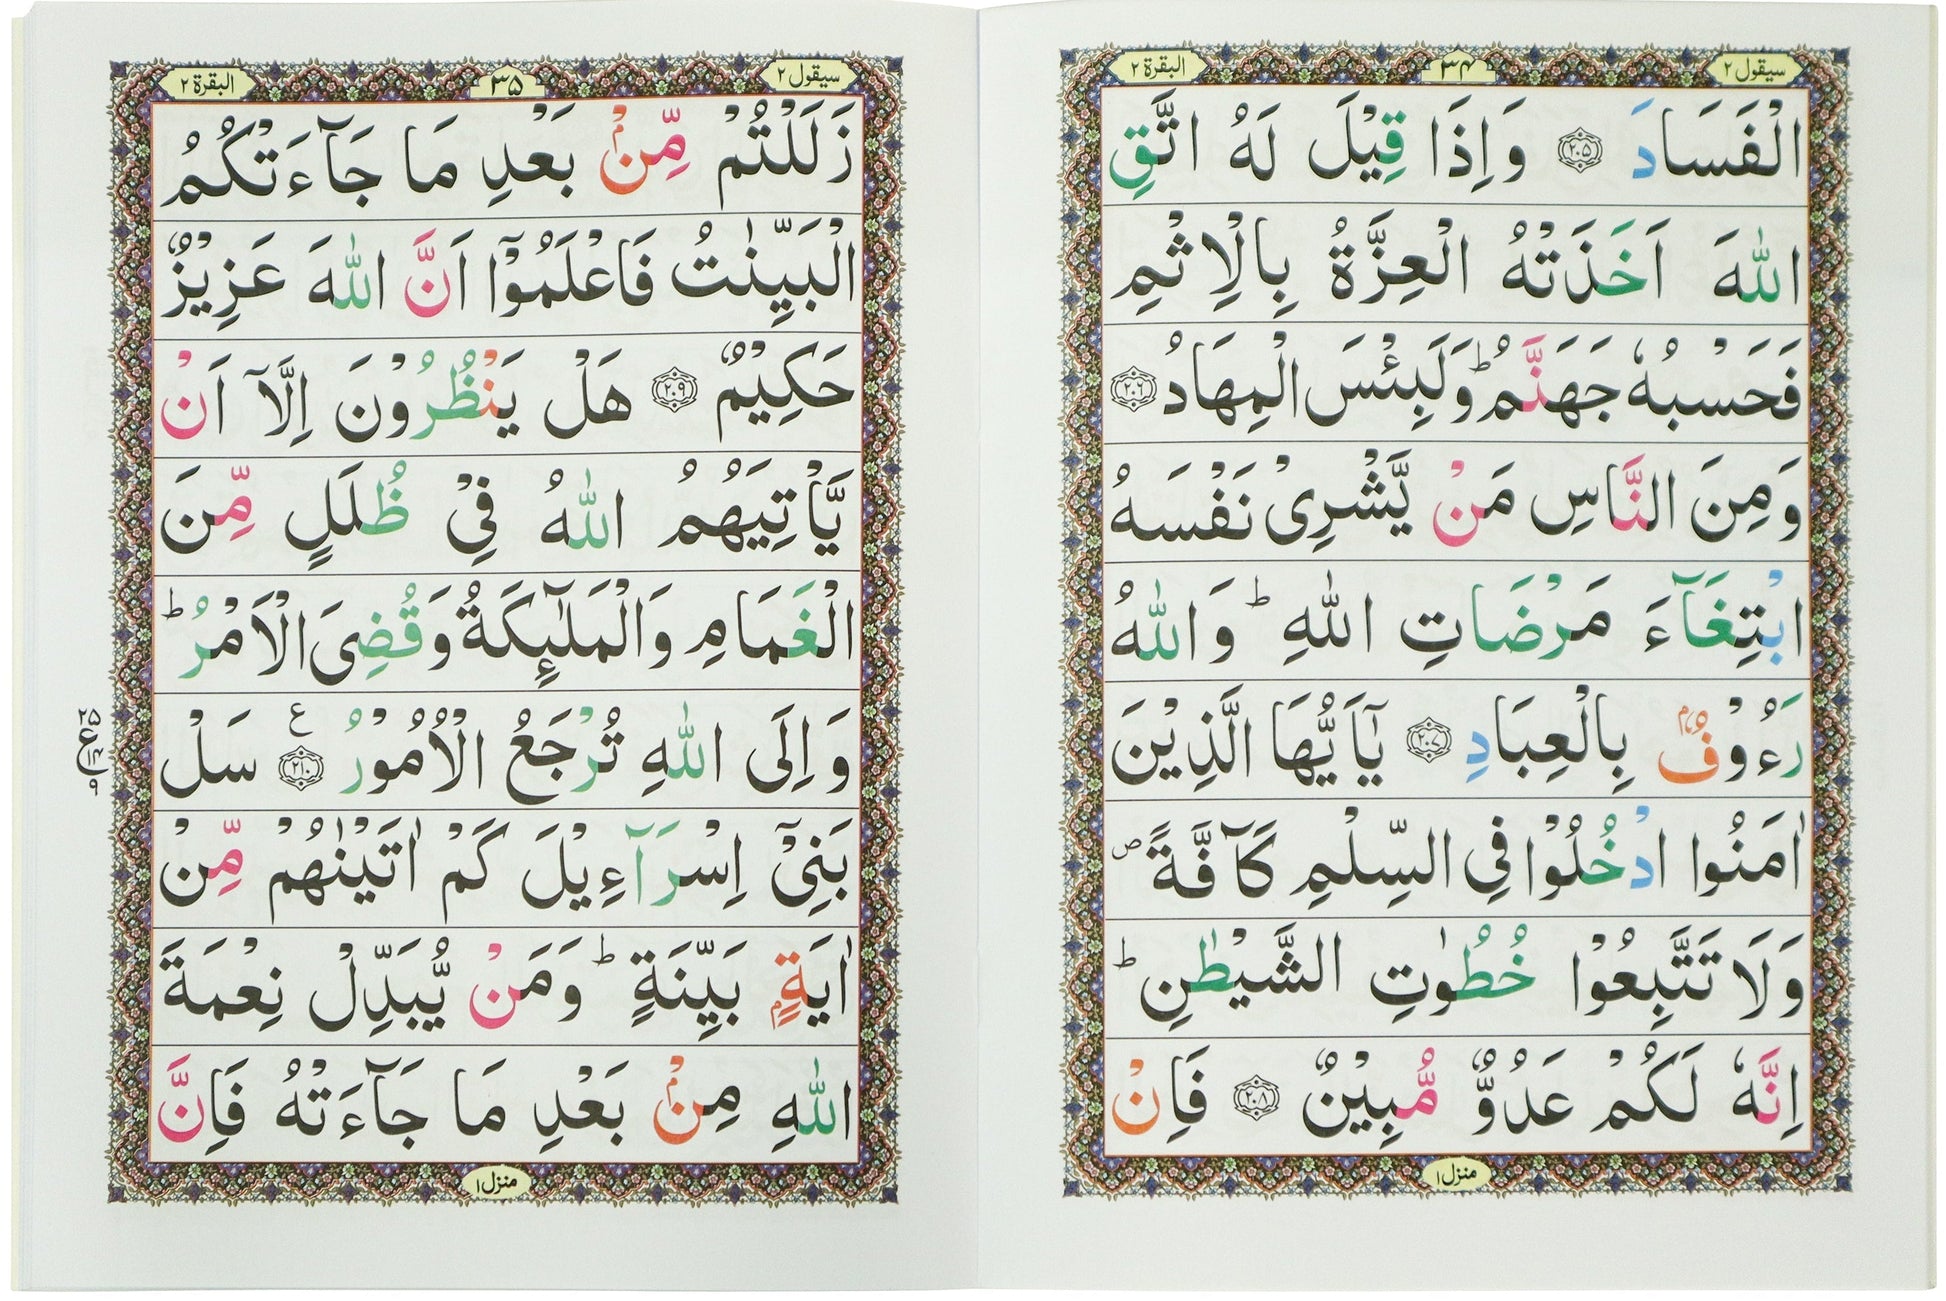 سيقول ٢
٣٤
البقرة ٢
الْفَسَادَ ﴿٢٠٥﴾ وَاِذَا قِيْلَ لَهُ اتَّقِ
اللّٰهَ اَخَذَتْهُ الْعِزَّةُ بِالْاِثْمِ
فَحَسْبُهٗ جَهَنَّمُ ؕ وَلَبِئْسَ الْمِهَادُ ﴿٢٠٦﴾
وَمِنَ النَّاسِ مَنْ يَّشْرِىْ نَفْسَهُ
ابْتِغَآءَ مَرْضَاتِ اللّٰهِ ؕ وَاللّٰهُ
رَءُوْفٌۢ بِالْعِبَادِ ﴿٢٠٧﴾ يٰۤاَيُّهَا الَّذِيْنَ
اٰمَنُوا ادْخُلُوْا فِى السِّلْمِ كَآفَّةً ۪
وَلَا تَتَّبِعُوْا خُطُوٰتِ الشَّيْطٰنِ ؕ
اِنَّهٗ لَكُمْ عَدُوٌّ مُّبِيْنٌ ﴿٢٠٨﴾ فَاِنْ
منزل ١
سيقول ٢
٣٥
البقرة ٢
زَلَلْتُمْ مِّنْۢ بَعْدِ مَا جَآءَتْكُمُ
الْبَيِّنٰتُ فَاعْلَمُوْۤا اَنَّ اللّٰهَ عَزِيْزٌ
حَكِيْمٌ ﴿٢٠٩﴾ هَلْ يَنْظُرُوْنَ اِلَّاۤ اَنْ
يَّاْتِيَهُمُ اللّٰهُ فِىْ ظُلَلٍ مِّنَ
الْغَمَامِ وَالْمَلٰٓئِكَةُ وَقُضِىَ الْاَمْرُ ؕ
وَاِلَى اللّٰهِ تُرْجَعُ الْاُمُوْرُ ﴿٢١٠﴾ ع سَلْ
بَنِىْۤ اِسْرَآءِيْلَ كَمْ اٰتَيْنٰهُمْ مِّنْ
اٰيَةٍۭ بَيِّنَةٍ ؕ وَمَنْ يُّبَدِّلْ نِعْمَةَ
اللّٰهِ مِنْۢ بَعْدِ مَا جَآءَتْهُ فَاِنَّ
منزل ١
٢٥
ع
١٤
٩